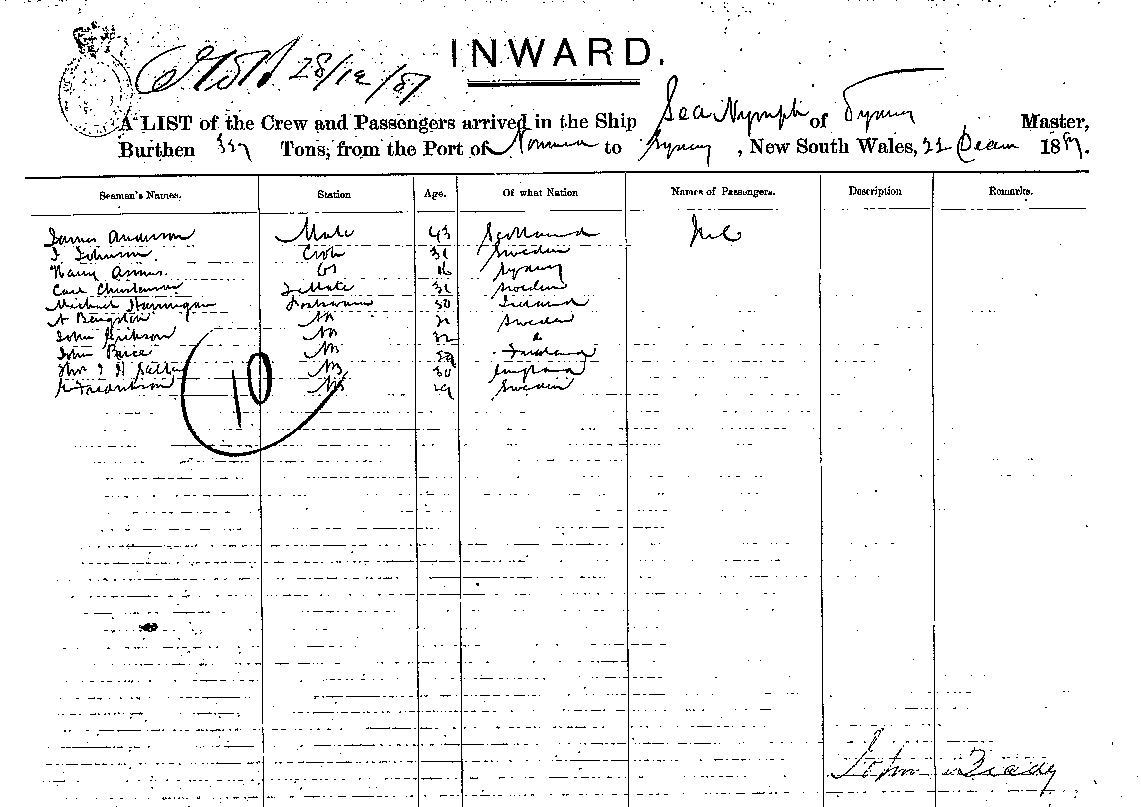 INWARD.
28/12/87
A LIST of the Crew and Passengers arrived in the Ship Sea Nymph of Sydney Master,
Burthen Tons, from the Port of Noumea to Sydney, New South Wales, 22 Decem 1887.
Seaman's Names. Station Age. Of what Nation Names of Passengers. Description Remarks.
James Anderson Mate 43 Scotland Nil
J Johnson. Cook 31 Sweden
Harry 16 Sydney
Carl Christenson 2 Mate 32 Sweden
Michael Hannigan Boatswain 30 Ireland
A Bengston AB Sweden
John Erikson AB 32
John AB
AB 30 England
AB 29 Sweden
10
John Brady